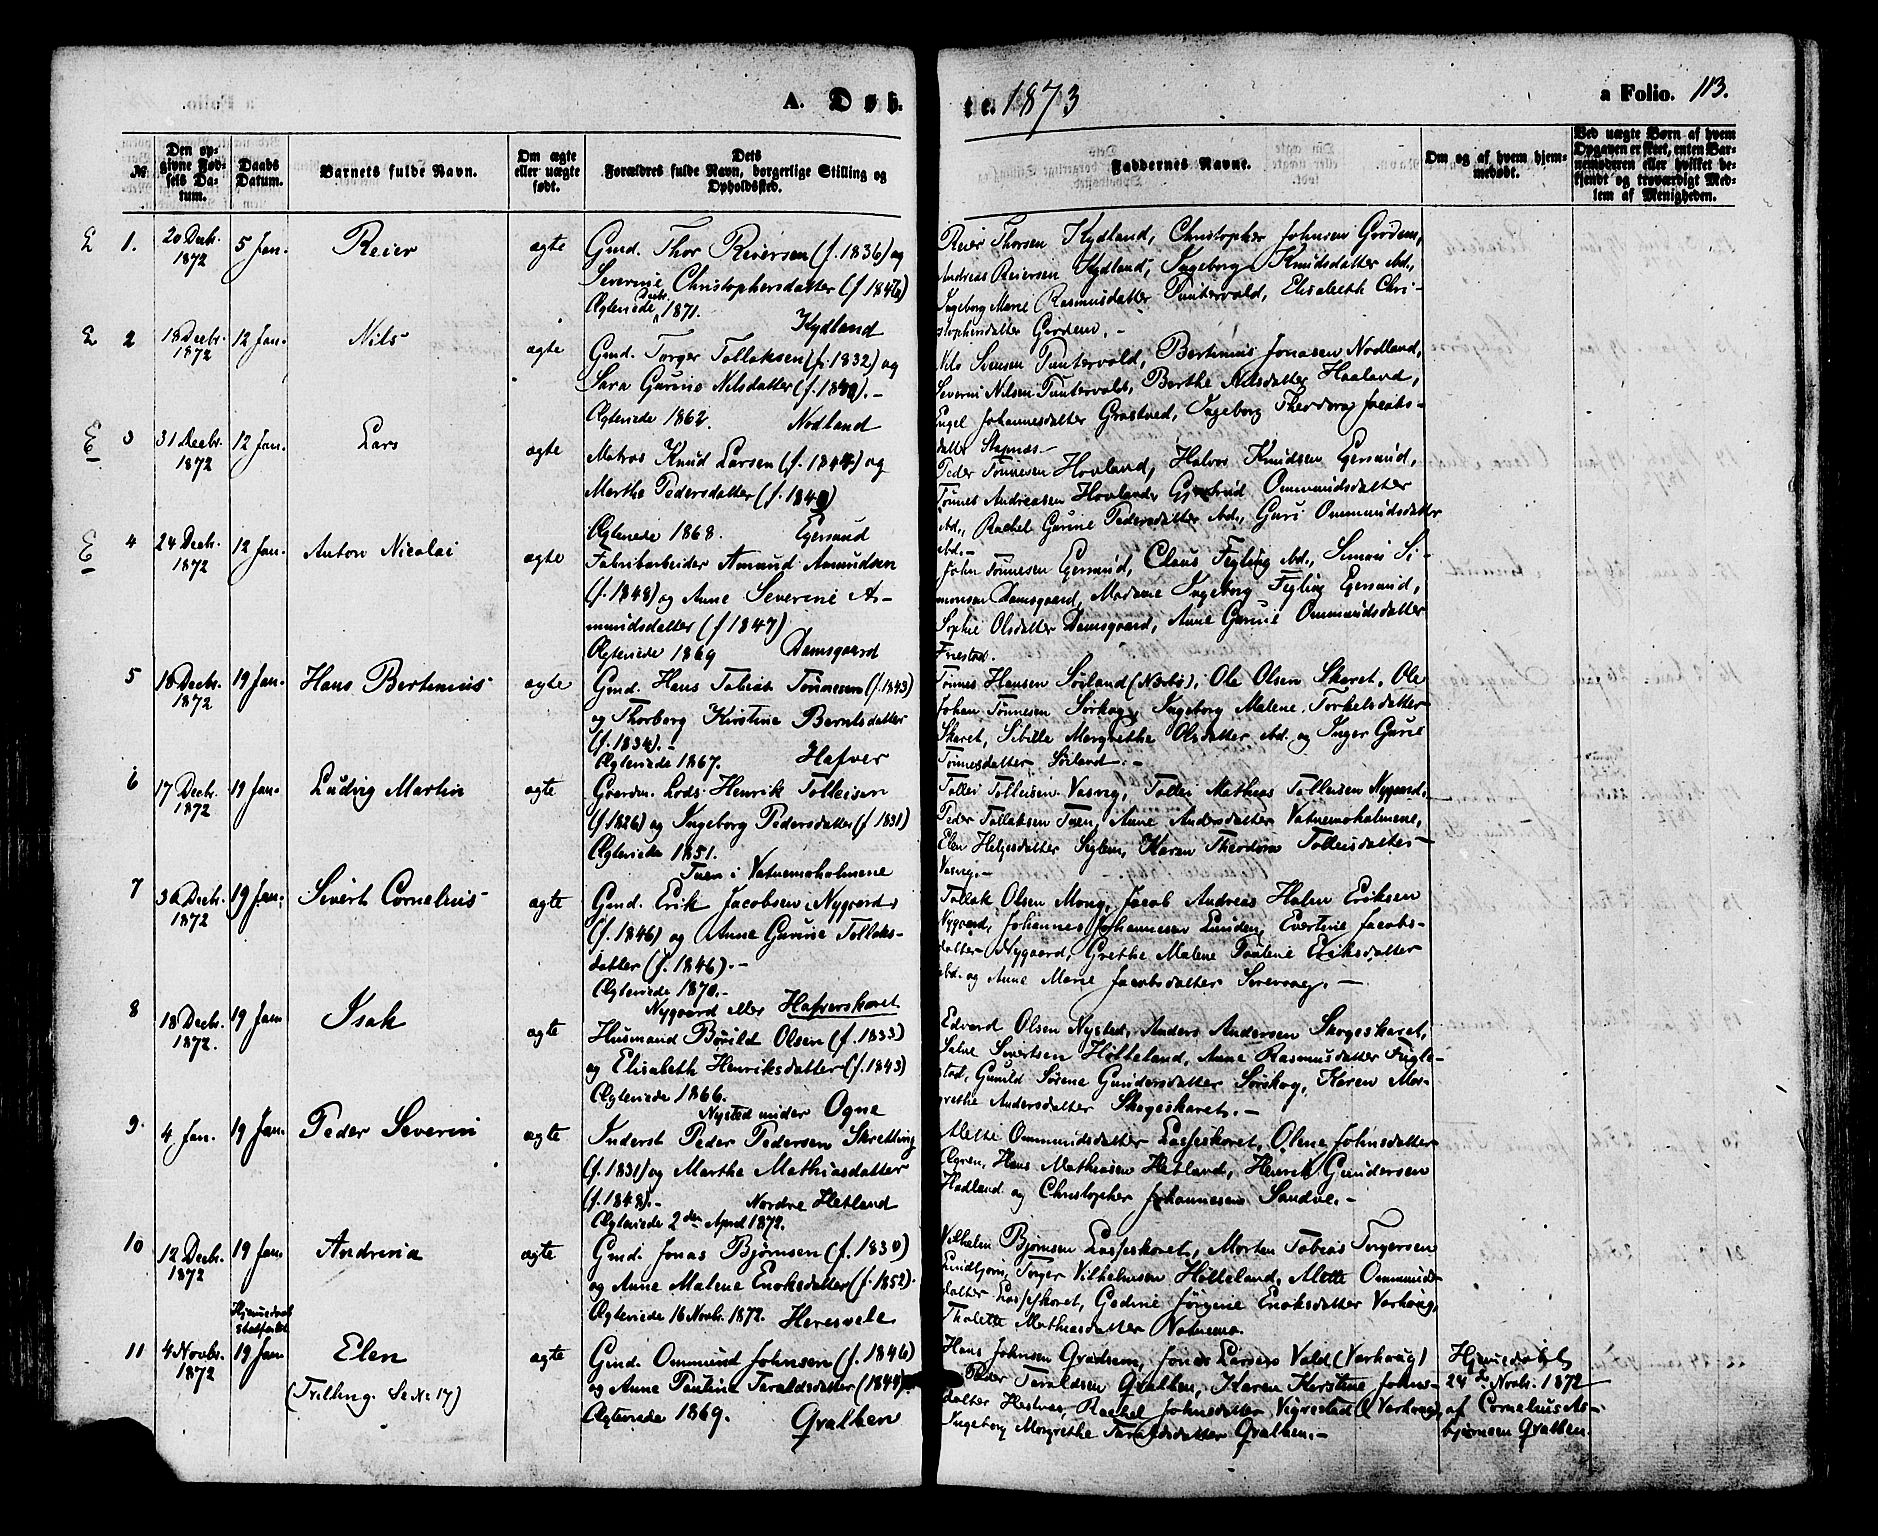 A. Døb-
te. 1873
a Folio. 113.
№
Den op-
givne Fød-
sels Da-
tum.
Daabs
Datum.
Barnets fulde Navn.
Om ægte
eller uægte
født.
Dets
Forældres fulde Navn, borgerlige Stilling og
Opholdssted.
Faddernes Navne.
Om og af hvem hjem-
medøbt.
Ved uægte Børn af hvem
Opgaven er skeet, enten Bar-
nemoderen eller hvilket be-
kjendt og troværdigt Med-
lem af Menigheden.
E 1. 20 Decb. 1872 5 Jan. Reier ægte
Gmd. Thor Reiersen (f. 1836) og
Severine Christophersdatter (f 1846)
Ægteviede Decbr. 1871. Kydland
Reier Thorsen Kydland, Christopher Johnsen Grødem,
Andreas Reiersen Kydland, Ingeborg Knudsdatter ibd.,
Ingeborg Marie Rasmusdatter Puntervold, Elisabeth Chri-
stophersdatter Grødem.-
E 2 18 Decbr. 1872 12 Jan. Nils ægte
Gmd. Torger Tollaksen (f. 1832) og
Sara Gurine Nilsdatter (f. 1840).-
Ægteviede 1862. Nodland
Nils Svensen Puntervold, Bertinius Jonasen Nodland,
Severin Nilsen Puntervold, Berthe Nilsdatter Haaland,
Engel Johannesdatter Grastved, Ingeborg Theodora Jacobs-
datter Stapnæs.-
E 3 31 Decbr. 1872 12 Jan. Lars ægte
Matros Knud Larsen (f. 1844) og
Marthe Pedersdatter (f. 1840)
Ægteviede 1868. Egersund
Peder Tønnesen Hovland, Halvor Knudsen Egersund,
Tønnes Andreasen Hovland, Gjertrud Ommundsdatter
ibd., Rachel Gurine Pedersdatter ibd., Guri Ommundsdatter
ibd.-
E 4 24 Decb. 1872 12 Jan. Anton Nicolai ægte
Fabrikarbeider Amund Amundsen
(f. 1848) og Anne Severine A-
mundsdatter (f 1847)
Ægteviede 1869 Damsgaard
John Tønnesen Egersund, Claus Fegling ibd., Simon Si-
monsen Damsgaard, Madame Ingeborg Fegling Egersund,
Sophie Olsdatter Damsgaard, Anne Gurine Ommundsdatter
Frøstad.
5 18 Decbr. 1872 19 Jan. Hans Bertinius ægte
Gmd. Hans Tobias Tønnesen (f. 1843)
og Thorborg Kirstine Berntsdatter
(f. 1834).-
Ægteviede 1867. Hafver
Tønnes Hansen Søiland (Nærbø), Ole Olsen Skaret, Ole
Johan Tønnesen Sørkog, Ingeborg Malene Torkelsdatter
Skaret, Sibille Margrethe Olsdatter ibd. og Inger Gurie
Tønnesdatter Søiland.-
6 17 Decbr. 1872 19 Jan. Ludvig Martin ægte
Gaardm. Lods Henrik Tolleisen
(f. 1826) og Ingeborg Pedersdatter (f 1831)
Ægteviede 1851.
Tuen i Vatnemoholmene
Tollei Tolleisen Vasvig, Tollei Mathias Tolleisen Nygaard,
Peder Tollaksen Tuen, Anne Andrsdatter Vatnemoholmene,
Elen Helgesdatter Seglem, Karen Theodora Tolleisdatter
Vasvig.-
7 30 Decb. 1872 19 Jan. Sivert Cornelius ægte
Gmd. Erik Jacobsen Nygaard
(f. 1846) og Anne Gurine Tollaks-
datter (f. 1846).-
Ægteviede 1870.-
Nygaard eller Hafverskaret
Tollak Olsen Mong, Jacob Andreas Halen Eriksen
Nygaard, Johannes Johannesen Lunden, Evertine Jacobs-
datter Nygaard, Grethe Malene Pauline Eriksdatter
ibd. og Anne Marie Jacobsdatter Sirevaag.-
8 18 Decb. 1872. 19 Jan Isak ægte
Husmand Børild Olsen (f. 1833)
og Elisabeth Henriksdatter (f. 1843)
Ægteviede 1866.
Nysted under Ogne
Edvard Olsen Nysted, Anders Andersen Skogeskaret,
Salve Sivertsen Hølleland, Anne Rasmusdatter Fugle-
stad, Gunild Sørene Gundersdatter Sørskog, Karen Mar-
grethe Andersdatter Skogeskaret.-
9. 4 Jan. 19 Jan. Peder Severin ægte
Inderst Peder Pedersen Skretting
(f. 1831) og Marthe Mathiasdatter
(f. 1848).- Nordre Hetland
Ægteviede 2den April 1872.
Alette Ommundsdatter Lasseskaret, Oline Johnsdatter
Ogren, Hans Mathiasen Hetland, Henrik Gundersen
Hadland og Christopher Johannesen Sandve.-
10 12 Decb. 1872 19 Jan. Andrina ægte
Gmd. Jonas Bjørnsen (f. 1830)
og Anne Malene Enoksdatter (f. 1852).
Ægteviede 16 Novbr. 1872. Heresvele
Vilhelm Bjørnsen Lasseskaret, Morten Tobias Torgersen
Lindbjørn, Torger Vilhelmsen Hølleland, Alette Ommunds-
datter Lasseskaret, Gedine Jørgine Enoksdatter Varhoug,
Thalette Mathiasdatter Vatnemo.
Hjemmedøb
stadfæstet
11 4 Novbr. 1872 19 Jan Elen ægte
(Tvilling. Se № 17)
Gmd. Ommund Johnsen (f. 1846)
og Anne Pauline Taraldsdatter (1844)
Ægteviede 1869. Qvalben
Hans Johnsen Qvadsem, Jonas Larsen Vold (Varhoug)
Peder Taraldsen Qvalben, Karen Kirstine Johns-
datter Hestnes, Rachel Johnsdatter Vigrestad (Varhoug),
Ingeborg Margrethe Taraldsdatter Qvalben.-
Hjemmedøbt
24de Novb. 1872
af Cornelius As-
bjørnsen Qvalben.